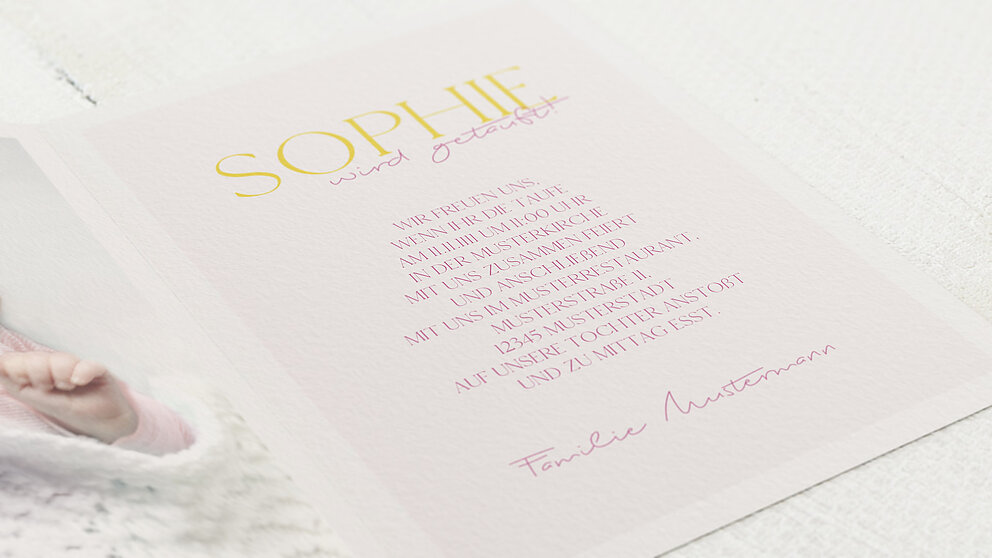 SOPHIE
wird getauft!
WIR FREUEN UNS,
WENN IHR DIE TAUFE
AM 11.11.1111 UM 11:00 UHR
IN DER MUSTERKIRCHE
MIT UNS ZUSAMMEN FEIERT
UND ANSCHLIEßEND
MIT UNS IM MUSTERRESTAURANT,
MUSTERSTRAßE 11,
12345 MUSTERSTADT
AUF UNSERE TOCHTER ANSTOßT
UND ZU MITTAG ESST.
Familie Mustermann